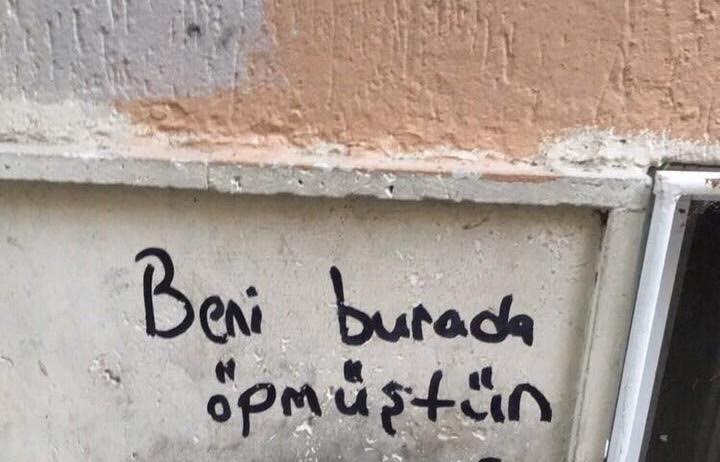 Beni burada
öpmüştün